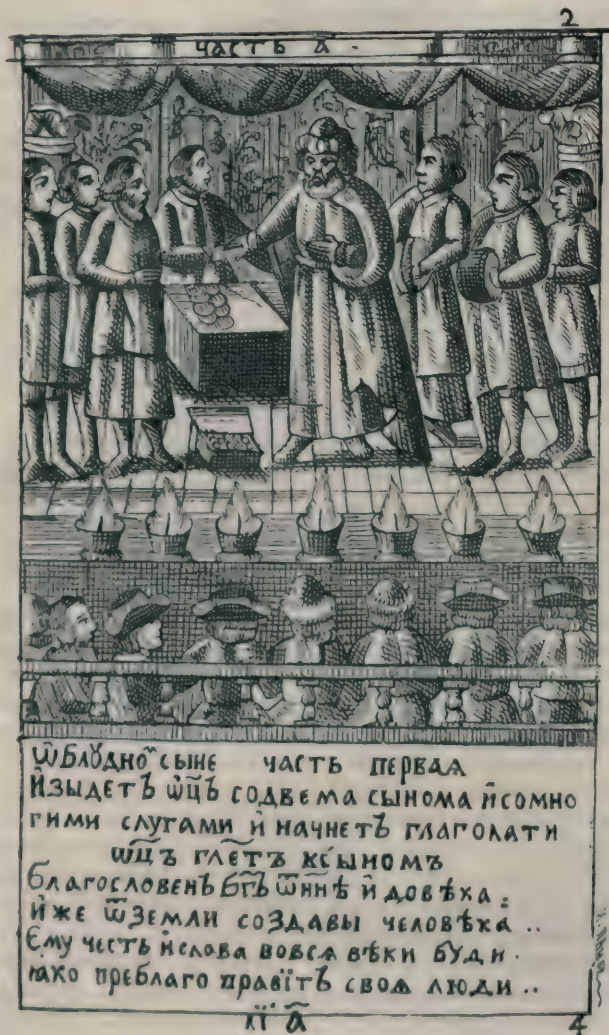 2
ЧАСТЬ А҃ .
Ѡ БЛꙊДНОᲿ СЫНЕ ЧАСТЬ ПЕРВАѦ
ИЗЫДЕТЪ Ѡ҃ЦЪ СОДВЕМА СЫНОМА И СОМНО
ГИМИ СЛУГАМИ И НАЧНЕТЪ ГЛАГОЛАТИ
Ѡ҃ЦЪ ГЛ҃ЕТЪ КСЫНОМЪ
БЛАГОСЛОВЕНЪ БГ҃Ъ ѾНН҃Ѣ И ДОВѢКА :
ИЖЕ Ѿ ЗЕМЛИ СОЗДАВЫ ЧЕЛОВѢКА ..
ЄМУ ЧЕСТЬ И СЛАВА ВОВСѦ ВѢКИ БУДИ .
ꙖКО ПРЕБЛАГО ПРАВЇТЪ СВОѦ ЛЮДИ ..
А҃ 4